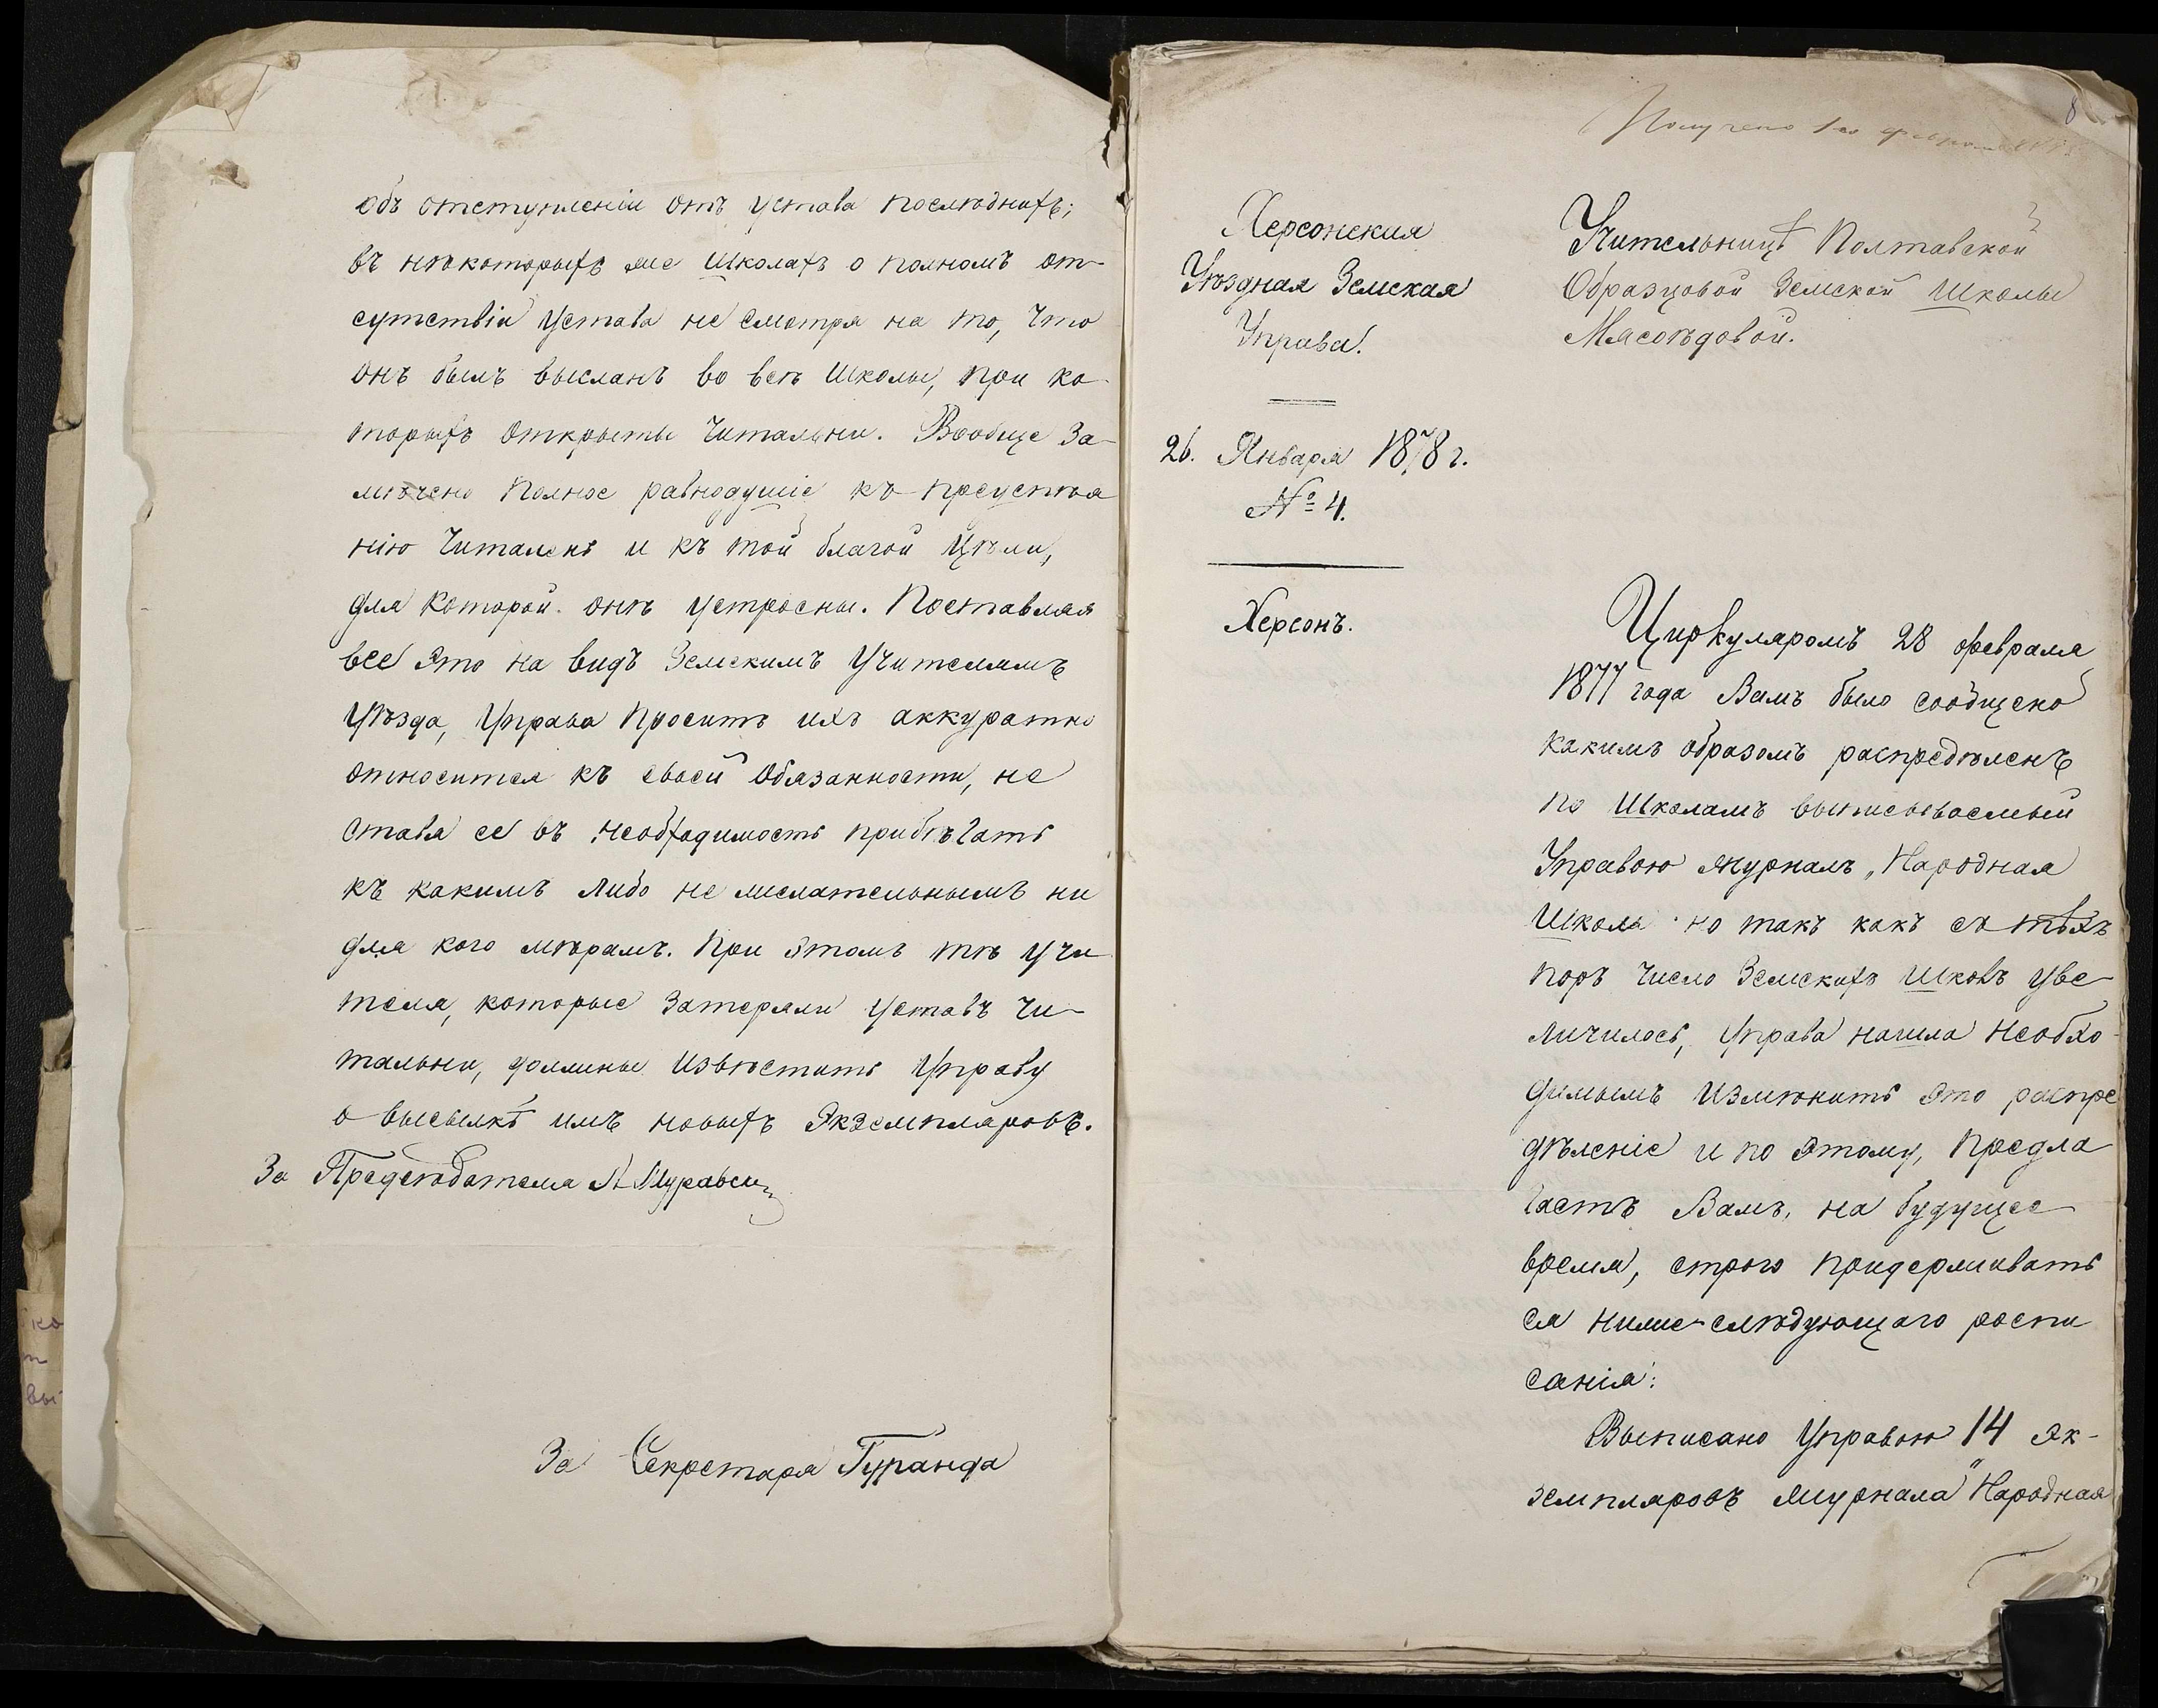 объ отступленіи отъ устава послѣднихъ;
въ нѣкоторыхъ же школахъ о полномъ от-
сутствіи устава не смотря на то, что
онъ былъ высланъ во всѣ школы, при ко-
торыхъ открыты читальни. Вообще за-
мѣчено полное равнодушіе къ преуспѣя
нію читалень и къ той благой цѣли,
для которой онѣ устроены. Поставляя
все это на видъ Земскимъ учителямъ
уѣзда, Управа проситъ ихъ аккуратно
относится къ своей обязанности, не
ставя ее въ необходимость прибѣгать
къ какимъ либо не желательнымъ ни
для кого мѣрамъ. При этомъ тѣ учи
теля, которые затеряли уставъ чи-
тальни, должны извѣстить Управу
о высылкѣ имъ новыхъ экземпляровъ.
За Предсѣдателя
За Секретаря Гуранда
8
Получено 1го февраля
Херсонская
Уѣздная Земская
Управа.
26. Января 1878 г.
№ 4.
Херсонъ.
Учительницѣ Полтавской
Образцовой Земской школы
Мясоѣдовой.
Циркуляромъ 28 февраля
1877 года Вамъ было сообщено
какимъ образомъ распредѣленъ
по школамъ выписываемый
Управою журналъ „Народная
Школа но такъ какъ съ тѣхъ
поръ число Земскихъ школъ уве-
личилось, Управа нашла необхо-
димымъ измѣнить это распре
дѣленіе и по этому, предла
гаетъ Вамъ, на будущее
время, строго придерживать
ся ниже-слѣдующаго роспи
санія:
Выписано Управою 14 эк-
земпляровъ журнала "Народная